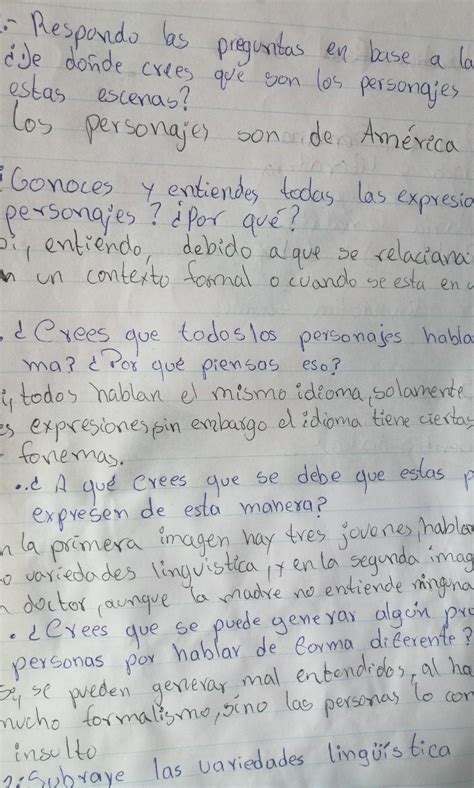 :- Respondo las preguntas en base a la
¿De donde crees que son los personajes
estas escenas?
Los personajes son de América
¿Conoces y entiendes todas las expresio
personajes? ¿Por qué?
Si, entiendo, debido a que se relaciana
n un contexto formal o cuando se esta en
. ¿Crees que todos los personajes habla
ma? ¿Por qué piensas eso?
i, todos hablan el mismo idioma, solamente
es expresiones, sin embargo el idioma tiene ciertas
fonemas.
..¿ A qué crees que se debe que estas p
expresen de esta manera?
n la primera imagen hay tres jovenes, hablan
o variedades linguistica, y en la segunda imag
n doctor, aunque la madre no entiende ninguna
. ¿Crees que se puede generar algún pro
personas por hablar de forma diferente?
Si, se pueden generar mal entendidos, al ha
mucho formalismo, sino las personas lo con
insulto
2: Subraye las variedades lingüistica